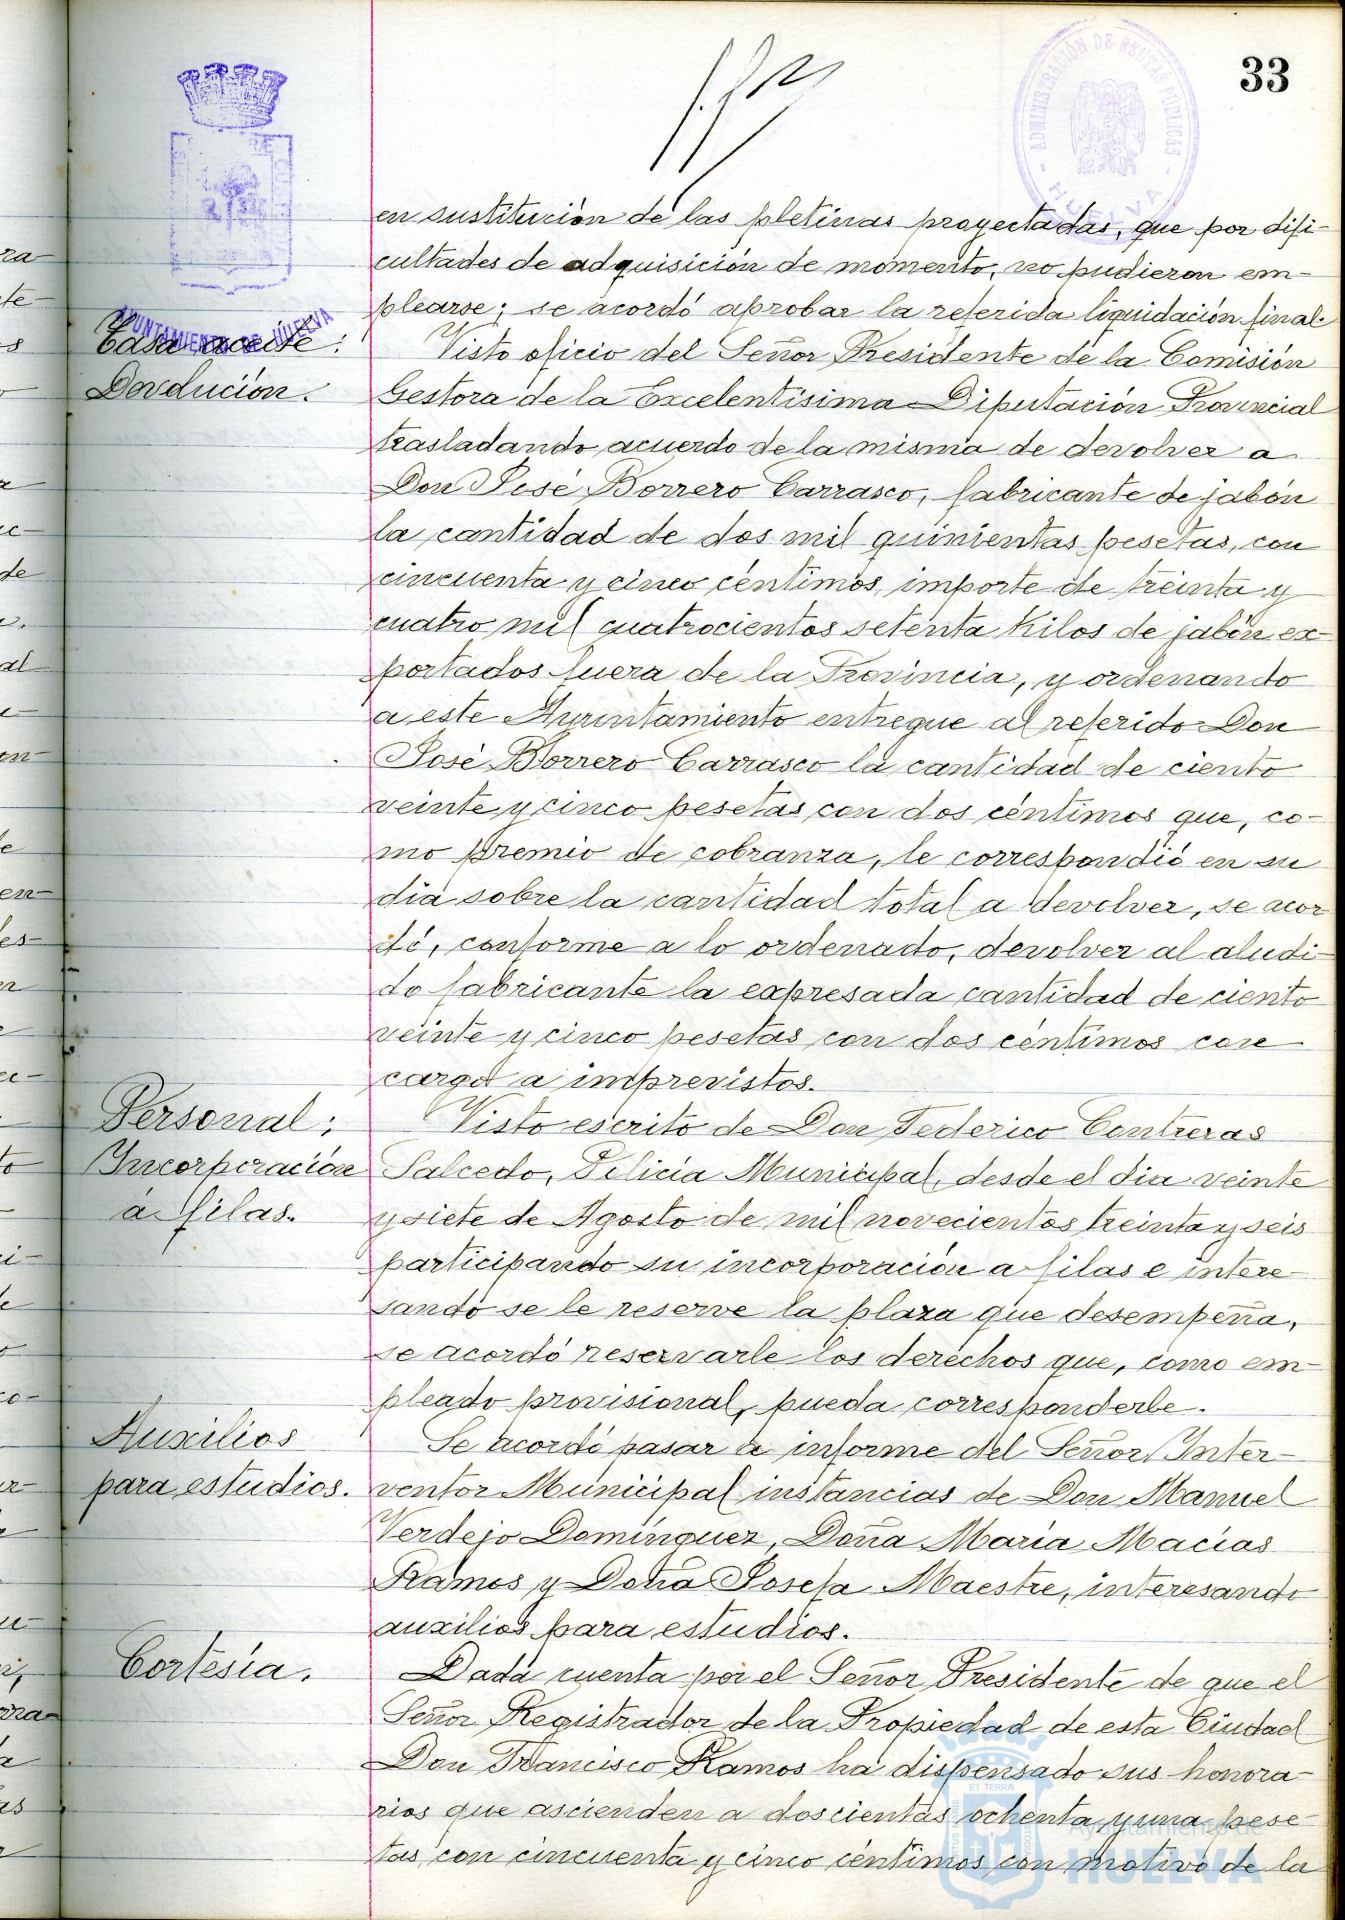 33
ADMINISTRACIÓN DE RENTAS PÚBLICAS
HUELVA
AYUNTAMIENTO DE HUELVA
en sustitución de las pletinas proyectadas, que por difi-
cultades de adquisición de momento, no pudieron em-
plearse; se acordó aprobar la referida liquidación final.
Tasa aceite:
Devolución.
Visto oficio del Señor Presidente de la Comisión
Gestora de la Excelentísima Diputación Provincial
trasladando acuerdo de la misma de devolver a
Don José Borrero Carrasco, fabricante de jabón
la cantidad de dos mil quinientas pesetas, con
cincuenta y cinco céntimos, importe de treinta y
cuatro mil cuatrocientos setenta Kilos de jabón ex-
portados fuera de la Provincia, y ordenando
a este Ayuntamiento entregue al referido Don
José Borrero Carrasco la cantidad de ciento
veinte y cinco pesetas con dos céntimos que, co-
mo premio de cobranza, le correspondió en su
dia sobre la cantidad total a devolver, se acor
dó, conforme a lo ordenado, devolver al aludi-
do fabricante la expresada cantidad de ciento
veinte y cinco pesetas con dos céntimos con
cargo a imprevistos.
Personal:
Incorporación
a filas.
Visto escrito de Don Federico Contreras
Salcedo, Policía Municipal, desde el dia veinte
y siete de Agosto de mil novecientos treinta y seis
participando su incorporación a filas e intere-
sando se le reserve la plaza que desempeña,
se acordó reservarle los derechos que, como em-
pleado provisional, pueda corresponderle.
Auxilios
para estudios.
Se acordó pasar a informe del Señor Inter-
ventor Municipal instancias de Don Manuel
Verdejo Domínguez, Doña María Macías
Ramos y Doña Josefa Maestre, interesando
auxilios para estudios.
Cortesía.
Dada cuenta por el Señor Presidente de que el
Señor Registrador de la Propiedad de esta Ciudad
Don Francisco Ramos ha dispensado sus honora-
rios que ascienden a doscientas ochenta y una pese-
tas, con cincuenta y cinco céntimos con motivo de la
Ayuntamiento de
HUELVA